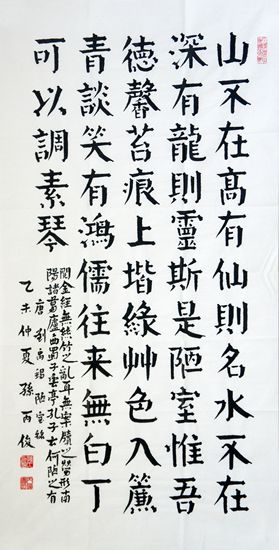 山不在髙有仙則名水不在
深有龍則靈斯是陋室惟吾
德馨苔痕上堦綠艸色入簾
青談笑有鴻儒往来無白丁
可以調素琴
閱金经無絲竹之亂耳無案牘之勞形南
陽諸葛廬西蜀子雲亭孔子云何陋之有
唐劉禹錫陋室銘
乙未仲夏孫丙俊